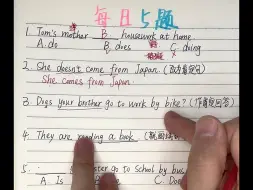 每日5题
1. Tom's mother B housework at home.
A. do B. does C. doing
2. She doesn't come from Japan. (改为肯定句)
She comes from Japan
3. Does your brother go to work by bike? (作肯定回答)
4. They are reading a book. (
5.
to school by bus
A. Is